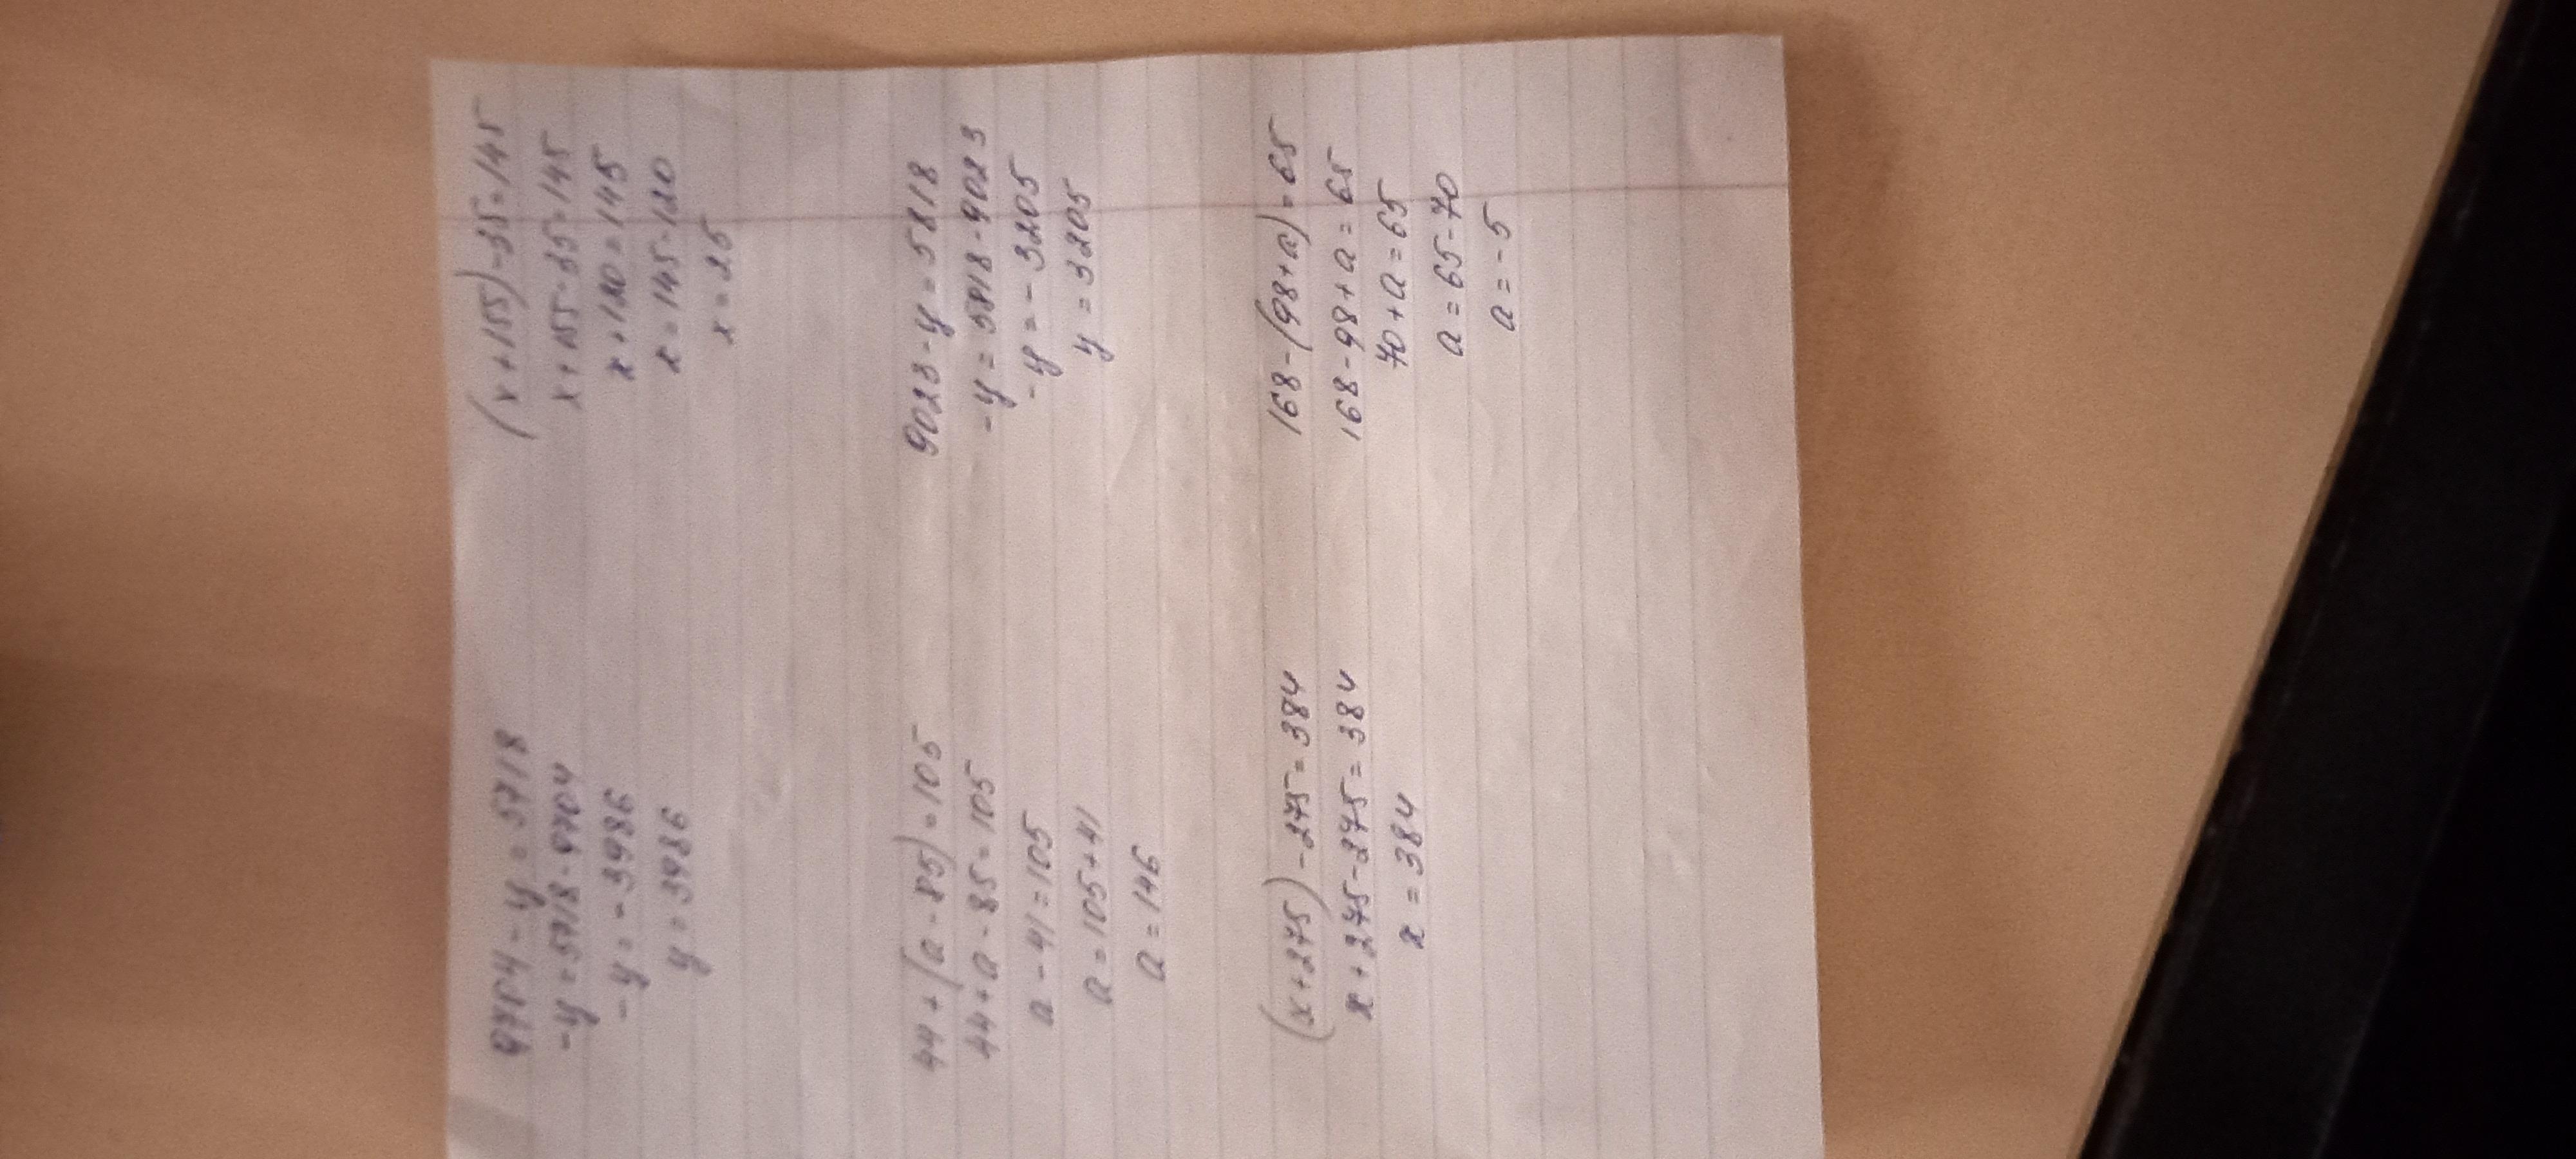 9704 - y = 5718
-y = 5718 - 9704
-y = -3986
y = 3986
(x + 155) - 35 = 145
x + 155 - 35 = 145
x + 120 = 145
x = 145 - 120
x = 25
44 + (a - 85) = 105
44 + a - 85 = 105
a - 41 = 105
a = 105 + 41
a = 146
9023 - y = 5818
-y = 5818 - 9023
-y = -3205
y = 3205
(x + 275) - 275 = 384
x + 275 - 275 = 384
x = 384
168 - (98 + a) = 65
168 - 98 + a = 65
70 + a = 65
a = 65 - 70
a = -5